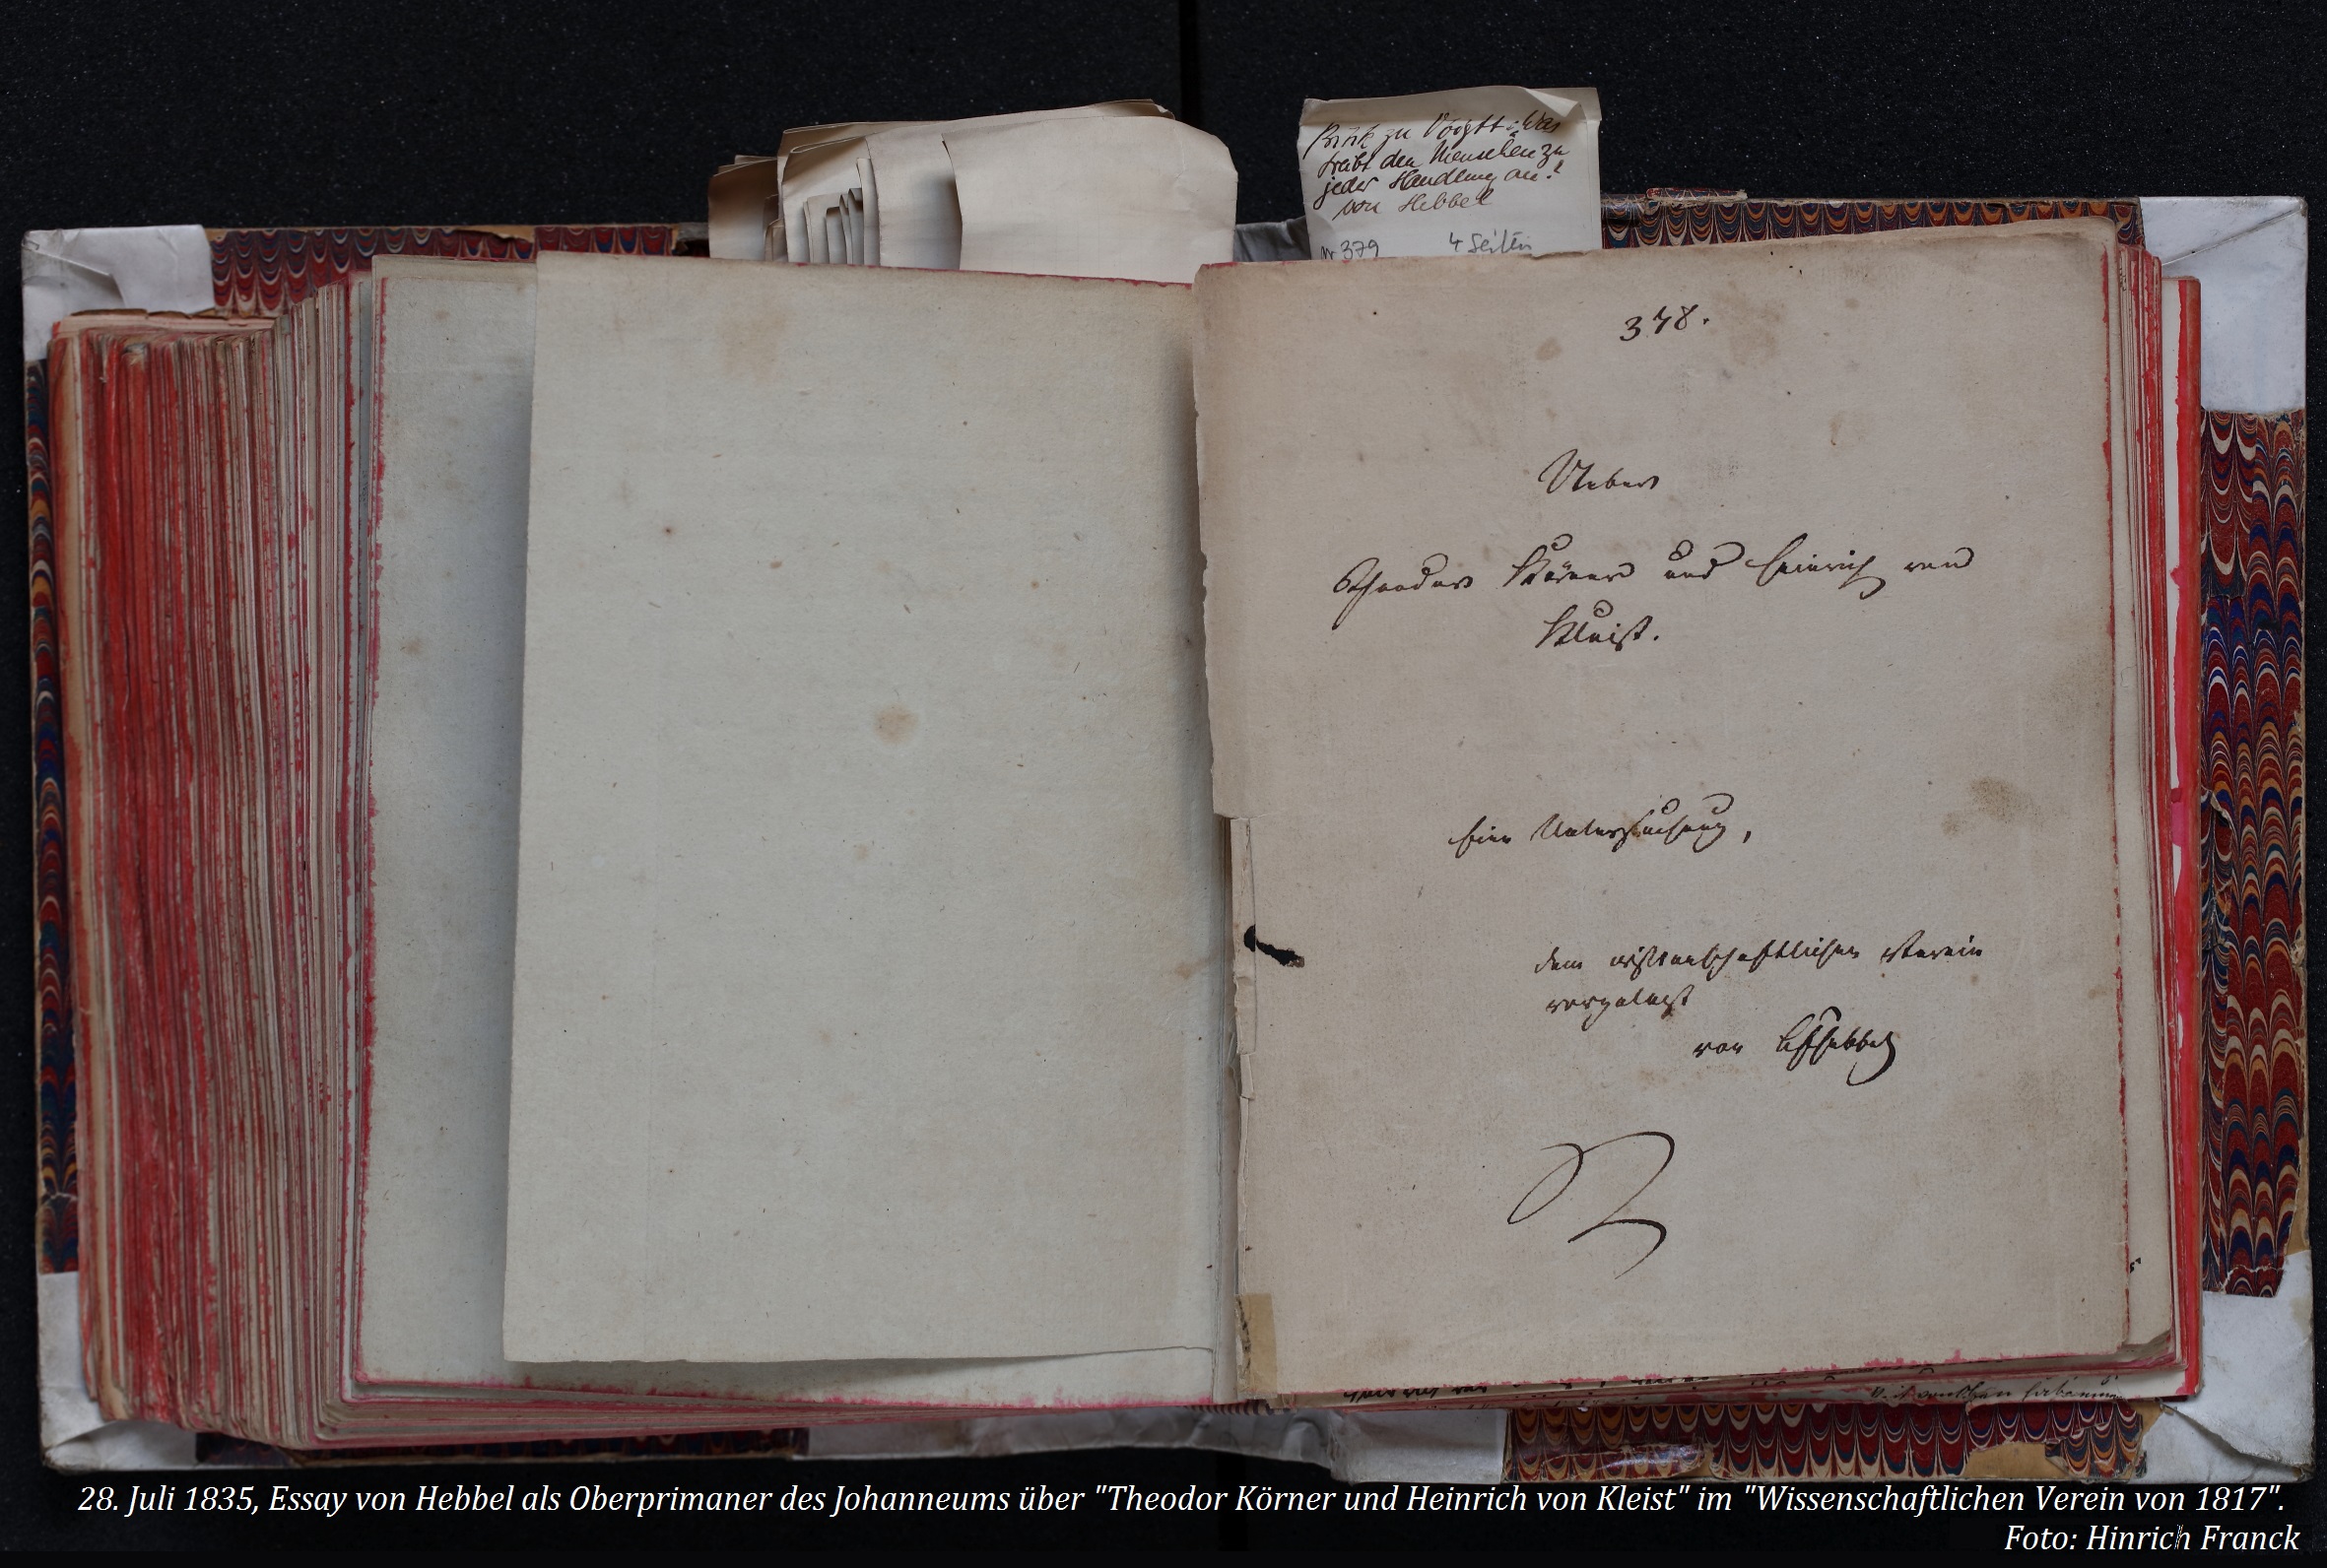 zu Voight: Was
treibt den Menschen zu
jeder Handlung an?
von Hebbel
Nr 379 4 Seiten
378.
Ueber
Theodor Körner und Heinrich von
Kleist.
Eine Untersuchung,
dem wissenschaftlichen Verein
vorgelegt
von Hebbel
28. Juli 1835, Essay von Hebbel als Oberprimaner des Johanneums über "Theodor Körner und Heinrich von Kleist" im "Wissenschaftlichen Verein von 1817".
Foto: Hinrich Franck